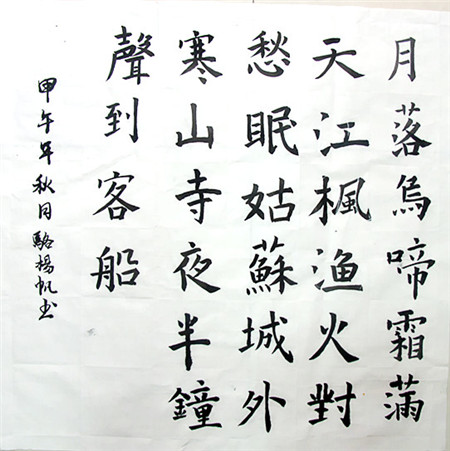 月落烏啼霜滿
天江楓漁火對
愁眠姑蘇城外
寒山寺夜半鐘
聲到客船
甲午年秋月駱楊帆書